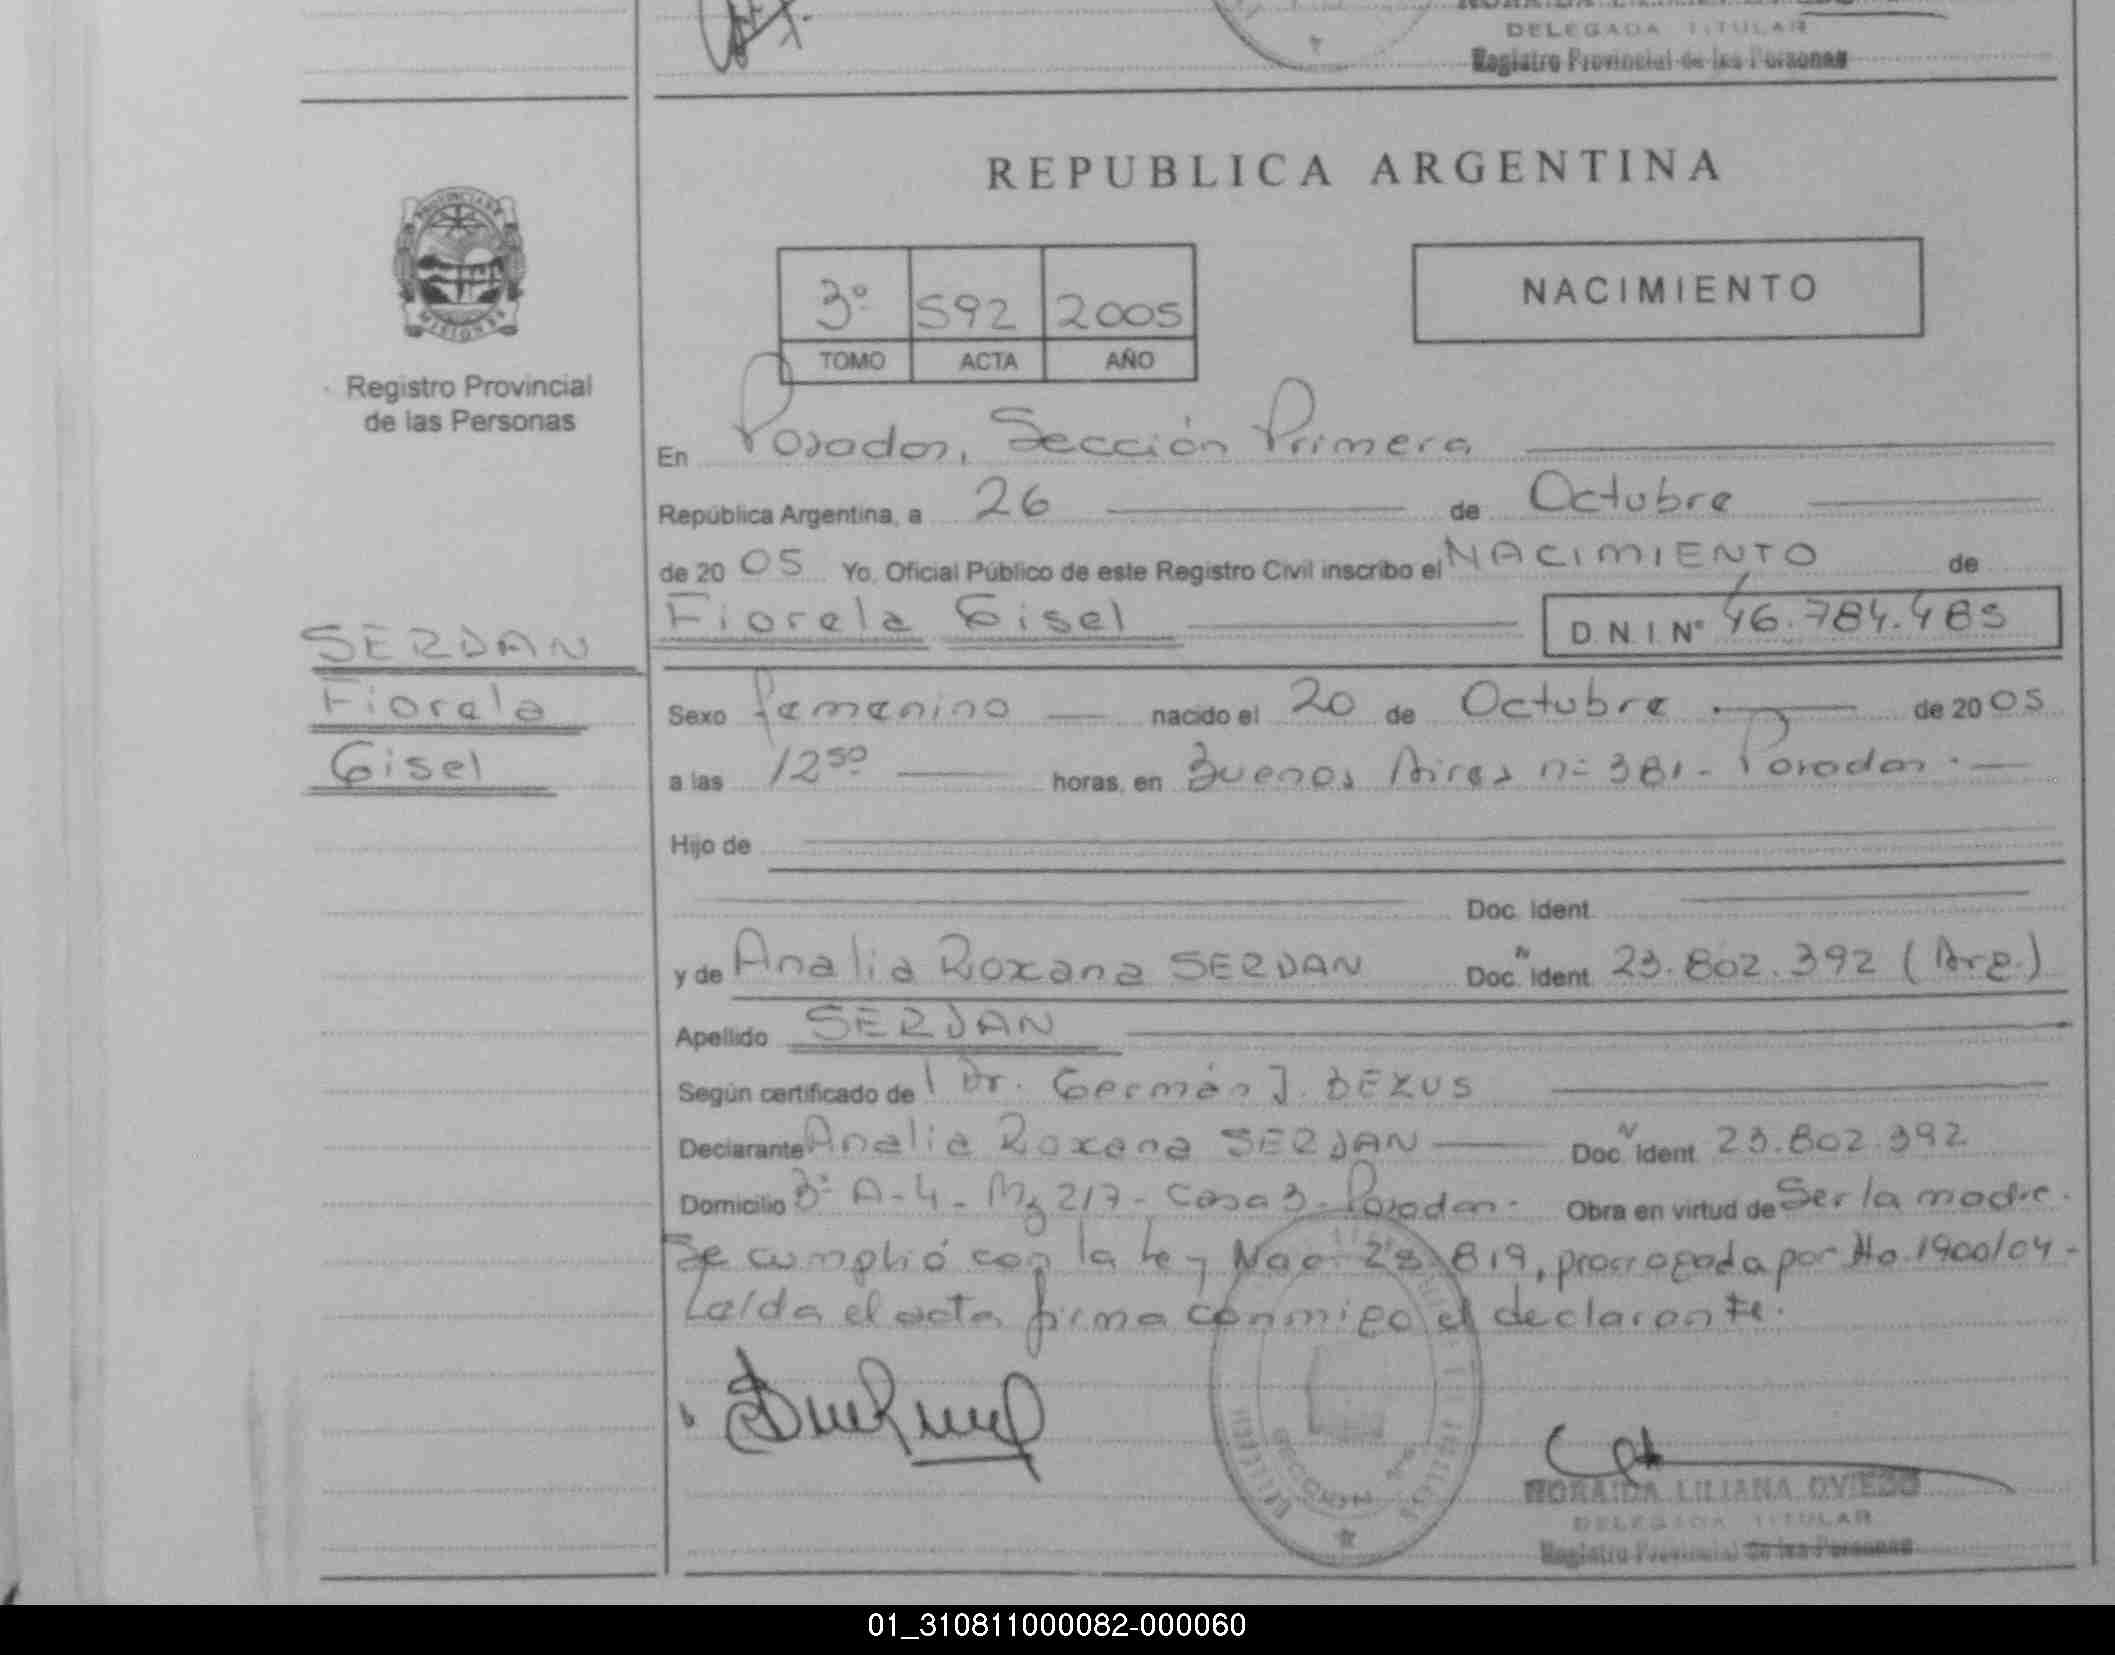 DELEGADA TITULAR
Registro Provincial de las Personas
REPUBLICA ARGENTINA
PROVINCIA DE
MISIONES
Registro Provincial
de las Personas
3º 592 2005
TOMO ACTA AÑO
NACIMIENTO
En Posadas, Sección Primera
República Argentina, a 26 de Octubre
de 2005 Yo, Oficial Público de este Registro Civil inscribo el NACIMIENTO de
Fiorela Gisel D.N.I.Nº 46.784.485
SERDAN
Fiorela
Gisel
Sexo femenino nacido el 20 de Octubre de 2005
a las 12 50 horas, en Buenos Aires nº 381 - Posadas.
Hijo de
Doc. Ident.
y de Analia Roxana SERDAN Doc. N Ident. 23.802.392 (Arg.)
Apellido SERDAN
Según certificado de Dr. Germán J. BEXUS
Declarante Analia Roxana SERDAN Doc. N Ident. 23.802.392
Domicilio 3º A-4 - Mz 217 - Casa 3 - Posadas. Obra en virtud de Ser la madre.
Se cumplió con la Ley Nac. 23.819, prorrogada por 1900/04 -
Leída el acta firma conmigo el declarante.
NORAIDA LILIANA OVIEDO
DELEGADA TITULAR
Registro Provincial de las Personas
01_310811000082-000060